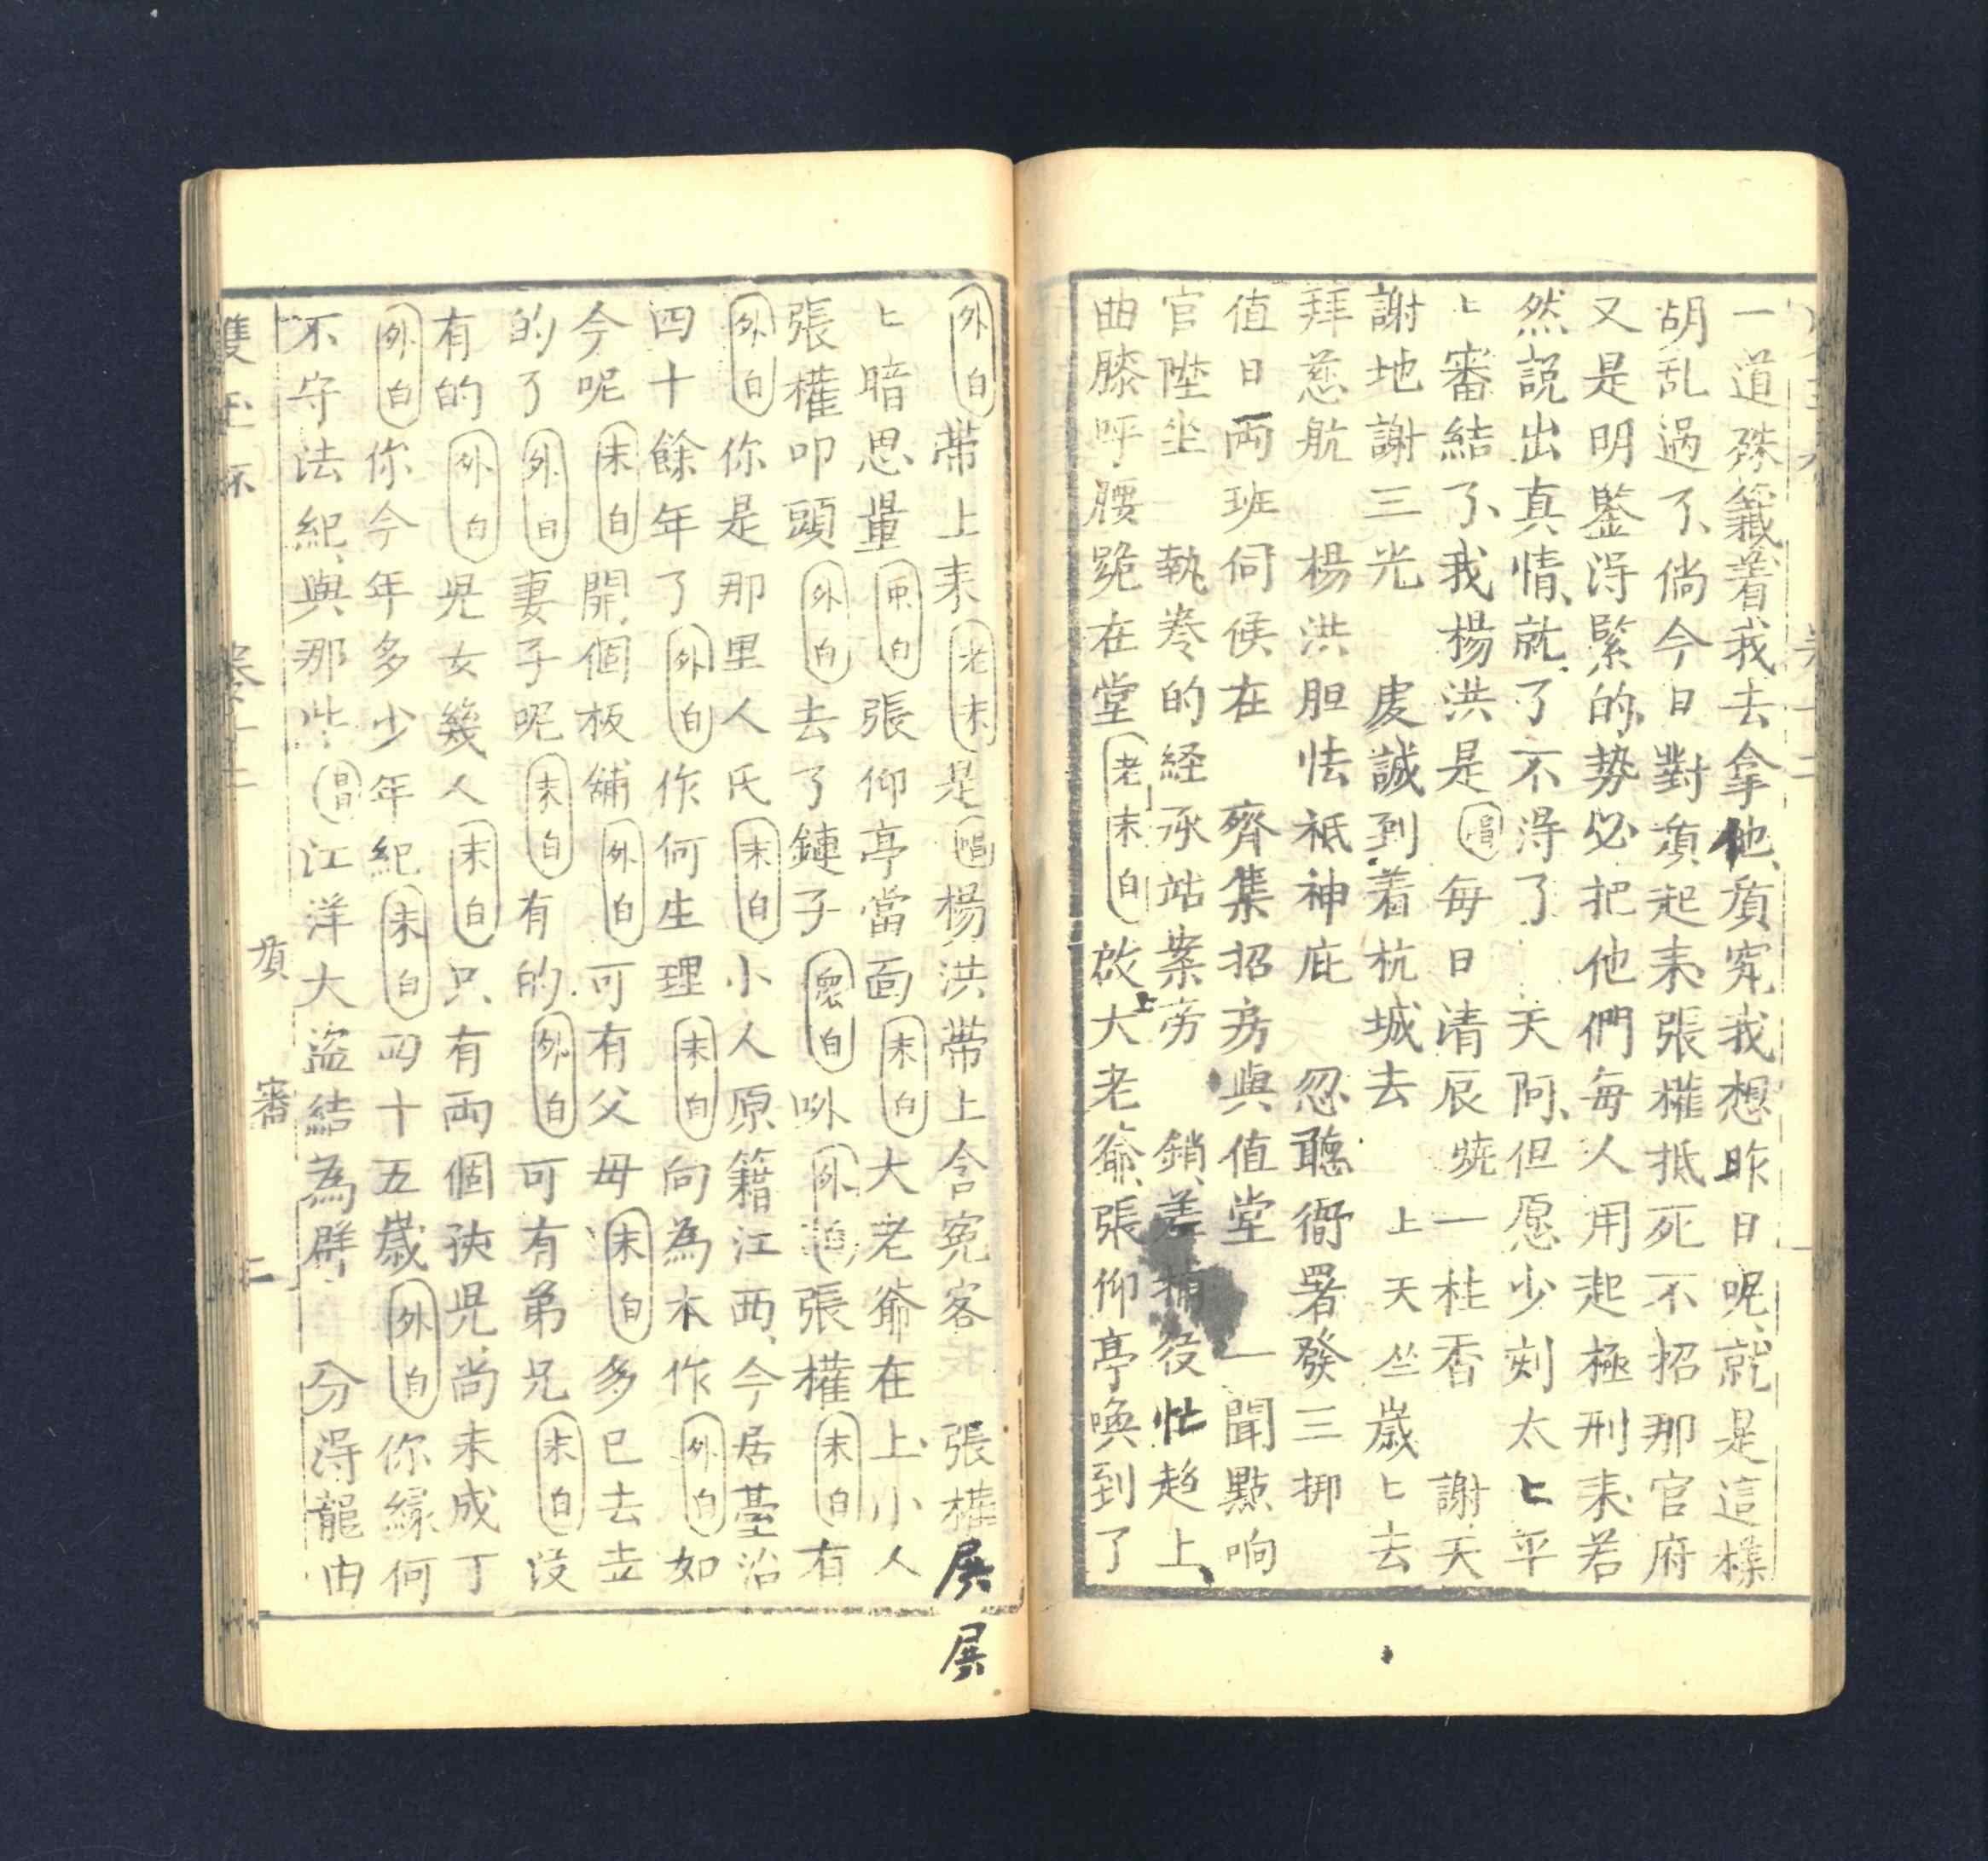 一道硃籤着我去拿他質究我想昨日呢就是這樣
胡乱過了倘今日對質起来張權抵死不招那官府
又是明鑒淂緊的勢必把他們每人用起極刑来若
然説出真情就了不淂了 天阿但愿少刻太匕平
匕審結了我楊洪是 唱 每日清辰燒一柱香 謝天
謝地謝三光 虔誠到着杭城去 上天竺嵗匕去
拜慈航 楊洪胆怯祇神庇 忽聽衙署發三梆
值日兩班伺候在 齊集招房與值堂 一聞點响
官陞坐 執卷的経承站案旁 鎖差捕役忙趋上
曲膝呼腰跪在堂 老末白 啟上大老爺張仰亭喚到了
外白 帶上来 老末 是 唱 楊洪帶上含冤客 張權展
展
匕暗思量 白 張仰亭當面 末白 大老爺在上小人
張權叩頭 外白 去了鏈子 衆白 㕭 外白 張權 末白 有
外白 你是那里人氏 末白 小人原籍江西今居基治
四十餘年了 外白 作何生理 末白 向為木作 外白 如
今呢 末白 開個板舖 外白 可有父母 末白 多已去立
的了 外白 妻子呢 末白 有的 外白 可有弟兄 末白 没
有的 外白 児女幾人 末白 只有兩個孩児尚未成丁
外白 你今年多少年紀 末白 四十五嵗 外白 你縁何
不守法紀與那些 唱 江洋大盗結為群 分淂龍由
雙玉杯 卷十二 質審 二